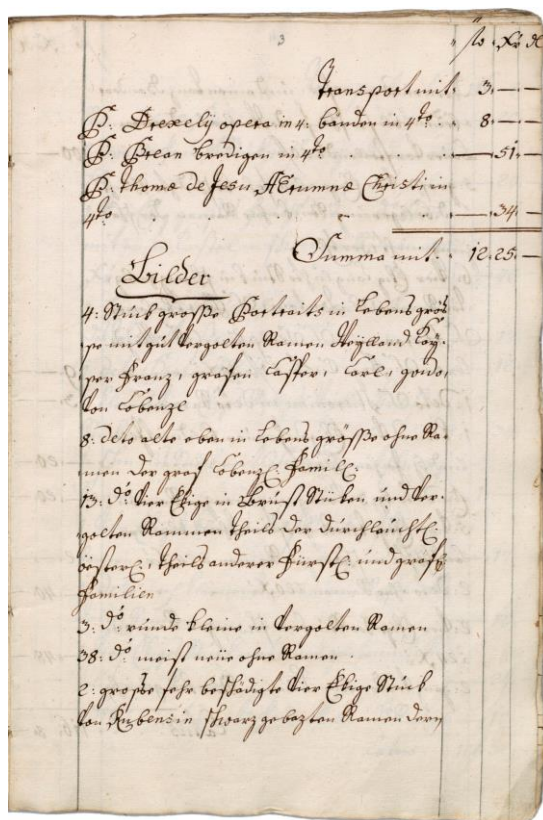 3
fl Xr dl
Transport mit. 3. — —
P: Drexelij opera in 4: bänden in 4to . 8 — —
P: Brean Predigen in 4to . . — 51. —
P: Thomæ de Jesu Ærumnæ Christi in
4to . . . — 34 —
Summa mit. 12. 25. —
Bilder
4: Stuck grosse Portraits in lebens grös
se mit gut vergolten Ramen Weylland Kay=
ser Franz, grafen Casper, Carl, guido
von Cobenzl
8: deto alte eben in lebens grösse ohne Ra=
men der graf Cobenzl: Famill:
13: do vier Ekige in Brust Stüken und ver=
golten Rammen theils der durchlaucht:
össter:, theils anderer Fürstl: und gräfl:
Familien
3: do runde kleine in vergolten Ramen
38: do meist neüe ohne Ramen.
2: grosse sehr beschädigte vier Ekige Stuck
von Rubens in schwarz gebazten Ramen deren